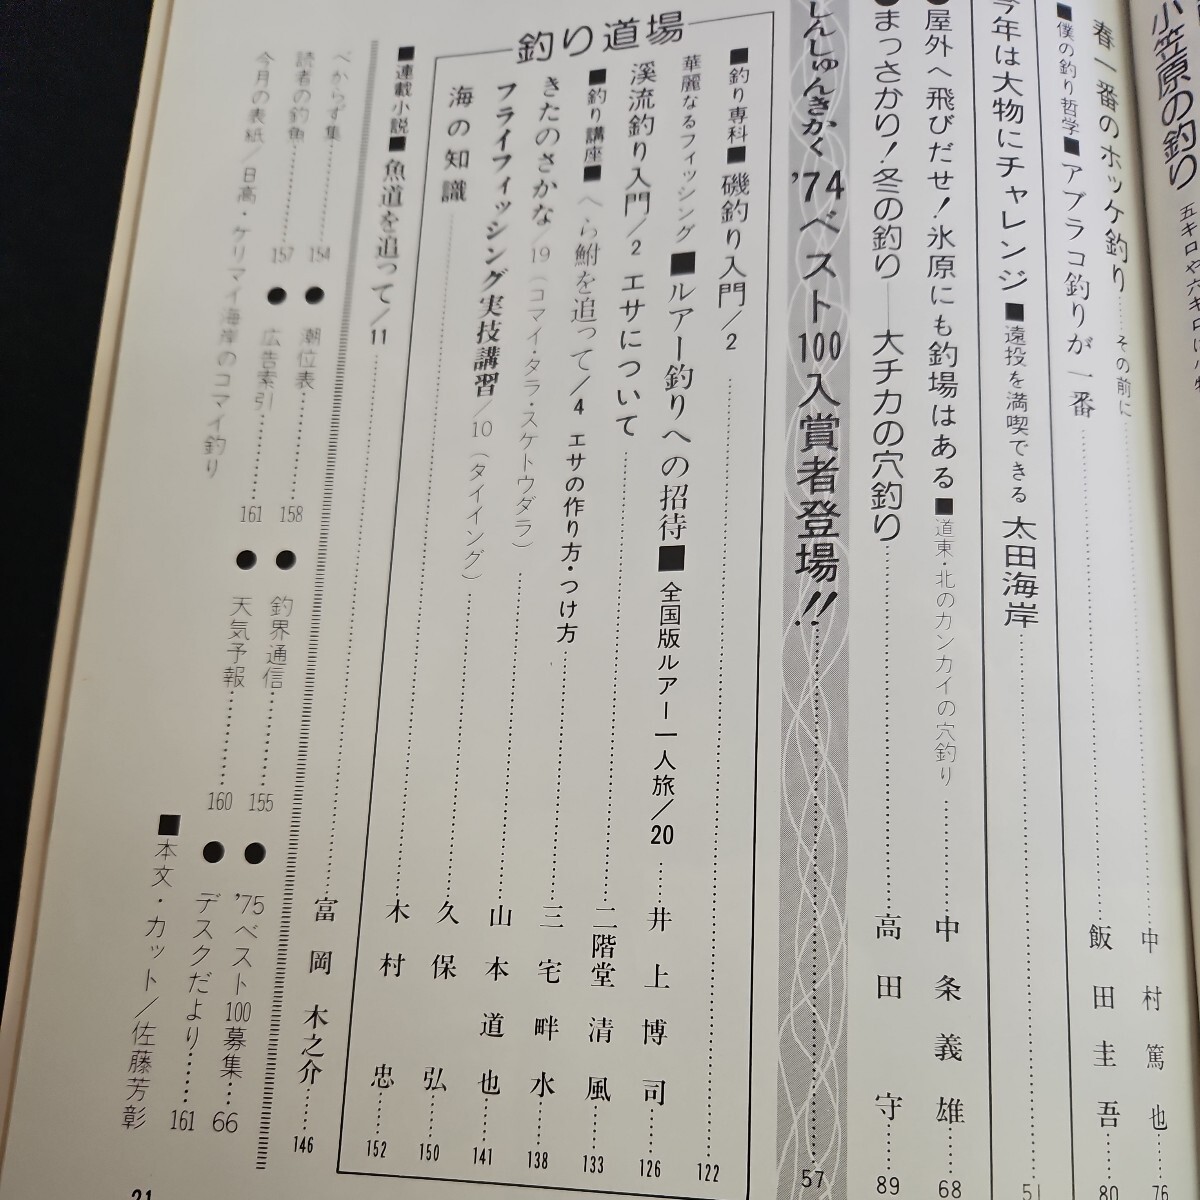 小笠原の釣り
春一番のホッケ釣り……その前に…………中村篤也……76
■僕の釣り哲学■アブラコ釣りが一番…………飯田圭吾……80
今年は大物にチャレンジ■遠投を満喫できる 太田海岸…………51
●屋外へ飛びだせ！氷原にも釣場はある■道東・北のカンカイの穴釣り…………中条義雄……68
●まっさかり！冬の釣り——大チカの穴釣り…………高田 守……89
しんしゅんきかく '74ベスト100入賞者登場!!…………57
釣り道場
■釣り専科■磯釣り入門/2…………122
華麗なるフィッシング■ルアー釣りへの招待■全国版ルアー一人旅/20……井上博司……126
渓流釣り入門/2 エサについて…………二階堂清風……133
■釣り講座■へら鮒を追って/4 エサの作り方・つけ方…………三宅畔水……138
きたのさかな/19（コマイ・タラ・スケトウダラ）…………山本道也……141
フライフィッシング実技講習/10（タイイング）…………久保 弘……150
海の知識…………木村 忠……152
■連載小説■魚道を追って/11…………富岡木之介……146
べからず集…………154
●潮位表…………158
●釣界通信…………155
●'75ベスト100募集…66
読者の釣魚…………157
●広告索引…………161
●天気予報…………160
●デスクだより……161
今月の表紙/日高・ケリマイ海岸のコマイ釣り
■本文・カット/佐藤芳彰
21